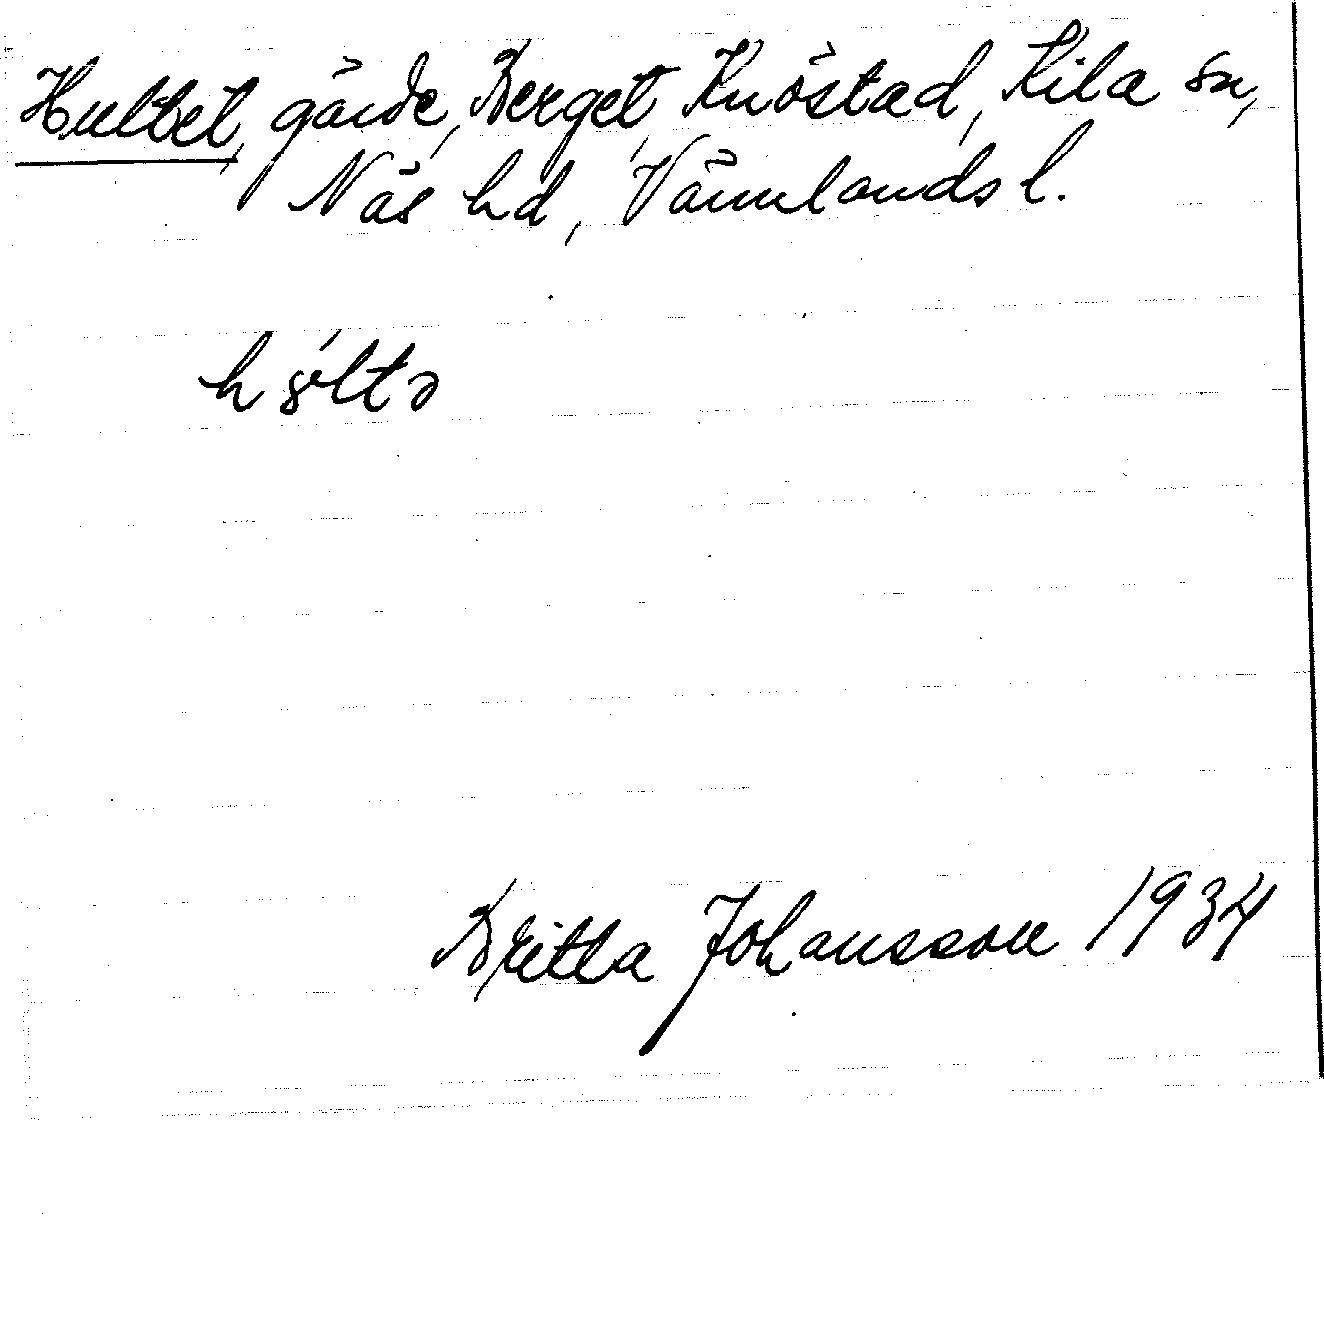 Hultet, gärde, Berget, Knöstad, Kila sn,
Näs hd, Värmlands l.
hóltə
Britta Johansson 1934